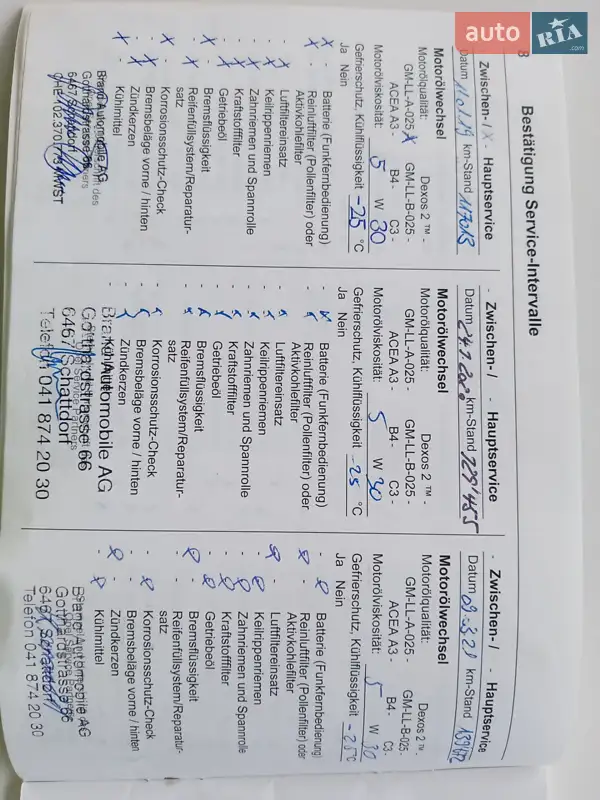 auto RIA .com
8
Bestätigung Service-Intervalle
Zwischen-/ X - Hauptservice
Datum 11.01.19 km-Stand 117013
Motorölwechsel
Motorölqualität: Dexos 2 ™ -
GM-LL-A-025 X GM-LL-B-025 -
ACEA A3 - B4 - C3 -
Motorölviskosität: 5 W 30
Gefrierschutz, Kühlflüssigkeit -25 °C
Ja Nein
X - Batterie (Funkfernbedienung)
X - Reinluftfilter (Pollenfilter) oder
Aktivkohlefilter
- X Luftfiltereinsatz
- X Keilrippenriemen
- X Zahnriemen und Spannrolle
- X Kraftstofffilter
- X Getriebeöl
X - Bremsflüssigkeit
- X Reifenfüllsystem/Reparatur-
satz
X - Korrosionsschutz-Check
- X Bremsbeläge vorne / hinten
- X Zündkerzen
X - Kühlmittel
Brand Automobile AG
Gotthardstrasse 66
6467 Schattdorf
- Zwischen-/ - Hauptservice
Datum 24.1.2020 km-Stand 128'455
Motorölwechsel
Motorölqualität: Dexos 2 ™ -
GM-LL-A-025 - GM-LL-B-025 -
ACEA A3 - B4 - C3 -
Motorölviskosität: 5 W 30
Gefrierschutz, Kühlflüssigkeit -25 °C
Ja Nein
Batterie (Funkfernbedienung)
Reinluftfilter (Pollenfilter) oder
Aktivkohlefilter
Luftfiltereinsatz
Keilrippenriemen
Zahnriemen und Spannrolle
Kraftstofffilter
Getriebeöl
Bremsflüssigkeit
Reifenfüllsystem/Reparatur-
satz
Korrosionsschutz-Check
Bremsbeläge vorne / hinten
Zündkerzen
Kühlmittel
Brand Automobile AG
Gotthardstrasse 66
6467 Schattdorf
Telefon 041 874 20 30
- Zwischen-/ - Hauptservice
Datum 09.3.21 km-Stand
Motorölwechsel
Motorölqualität: Dexos 2 ™ -
GM-LL-A-025 - GM-LL-B-025 -
ACEA A3 - B4 - C3 -
Motorölviskosität: 5 W 30
Gefrierschutz, Kühlflüssigkeit -25 °C
Ja Nein
Batterie (Funkfernbedienung)
Reinluftfilter (Pollenfilter) oder
Aktivkohlefilter
Luftfiltereinsatz
Keilrippenriemen
Zahnriemen und Spannrolle
Kraftstofffilter
Getriebeöl
Bremsflüssigkeit
Reifenfüllsystem/Reparatur-
satz
Korrosionsschutz-Check
Bremsbeläge vorne / hinten
Zündkerzen
Kühlmittel
Brand Automobile AG
Gotthardstrasse 66
6467 Schattdorf
Telefon 041 874 20 30